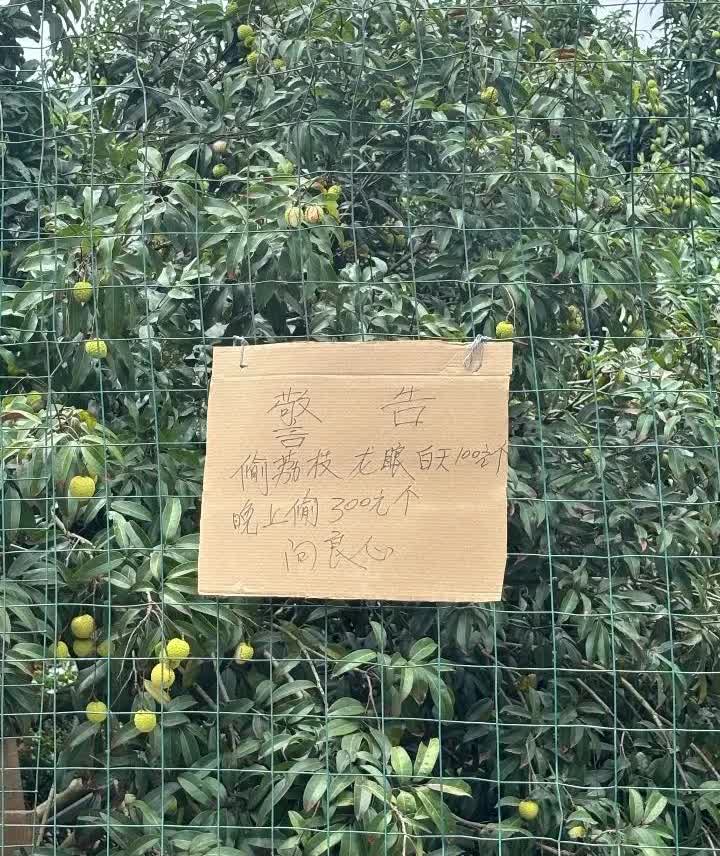 警告
偷荔枝龙眼白天100元个
晚上偷300元个
问良心